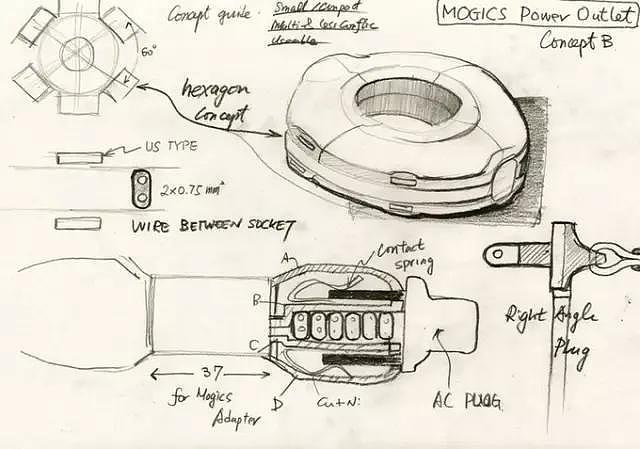 Concept guide.
Small/compact
Multi & less conflic
Useable
MOGICS Power Outlet
Concept B
60°
hexagon
concept
US TYPE
2×0.75 mm²
WIRE BETWEEN SOCKET
Contact
spring
A
B
C
D
37
for Mogics
Adapter
Cu+Ni
AC PLUG
Right Angle
Plug